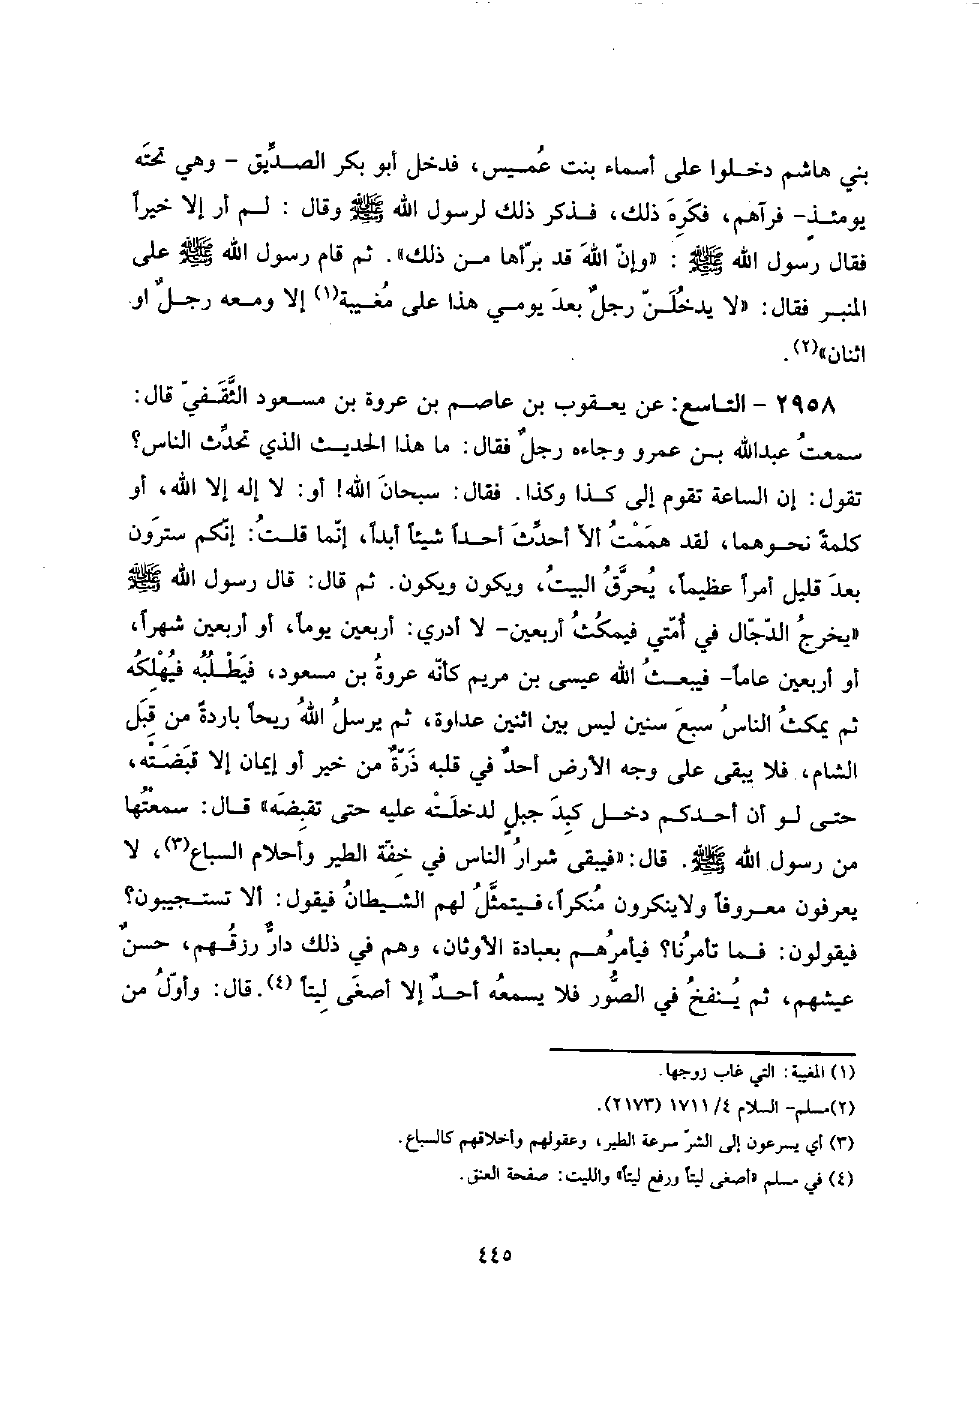 بني هاشم دخلوا على أسماء بنت عُميس، فدخل أبو بكر الصدّيق - وهي تحتَه
يومئذ- فرآهم، فكَرِهَ ذلك، فذكر ذلك لرسول الله ﷺ وقال : لم أر إلا خيراً
فقال رسول الله ﷺ : «وإنّ اللهَ قد برّأها من ذلك». ثم قام رسول الله ﷺ على
المنبر فقال: «لا يدخُلَنّ رجلٌ بعدَ يومي هذا على مُغيبة(١) إلا ومعه رجلٌ أو
اثنان»(٢).
٢٩٥٨ - التاسع: عن يعقوب بن عاصم بن عروة بن مسعود الثَّقَفيّ قال:
سمعتُ عبدالله بن عمرو وجاءه رجلٌ فقال: ما هذا الحديث الذي تحدِّث الناس؟
تقول: إن الساعة تقوم إلى كذا وكذا. فقال: سبحانَ الله! أو: لا إله إلا الله، أو
كلمةً نحوهما، لقد همَمْتُ ألاّ أحدِّثَ أحداً شيئاً أبداً، إنّما قلتُ: إنّكم سترَون
بعدَ قليل أمراً عظيماً، يُحرَّقُ البيتُ، ويكون ويكون. ثم قال: قال رسول الله ﷺ
«يخرجُ الدّجّال في أُمّتي فيمكُثُ أربعين- لا أدري: أربعين يوماً، أو أربعين شهراً،
أو أربعين عاماً- فيبعثُ الله عيسى بن مريم كأنّه عروةُ بن مسعود، فيَطْلُبُه فيُهْلِكُه
ثم يمكثُ الناسُ سبعَ سنين ليس بين اثنين عداوة، ثم يرسلُ اللهُ ريحاً باردةً من قِبَل
الشام، فلا يبقى على وجه الأرض أحدٌ في قلبه ذَرّةٌ من خير أو إيمان إلا قبَضَتْه،
حتى لو أن أحدكم دخل كبِدَ جبلٍ لدخلَتْه عليه حتى تقبِضَه» قال: سمعتُها
من رسول الله ﷺ. قال: «فيبقى شرارُ الناس في خِفّة الطير وأحلام السباع(٣)، لا
يعرفون معروفاً ولاينكرون مُنكراً، فيتمثَّلُ لهم الشيطانُ فيقول: ألا تستجيبون؟
فيقولون: فما تأمرُنا؟ فيأمرُهم بعبادة الأوثان، وهم في ذلك دارٌّ رزقُهم، حسنٌ
عيشهم، ثم يُنفخُ في الصُّور فلا يسمعُه أحدٌ إلا أصغَى لِيتاً (٤). قال: وأوّلُ من
(١) المغيبة: التي غاب زوجها.
(٢)مسلم- السلام ٤/ ١٧١١ (٢١٧٣).
(٣) أي يسرعون إلى الشرّ سرعة الطير، وعقولهم وأخلاقهم كالسباع.
(٤) في مسلم «أصغى ليتاً ورفع ليتاً» والليت: صفحة العنق.
٤٤٥